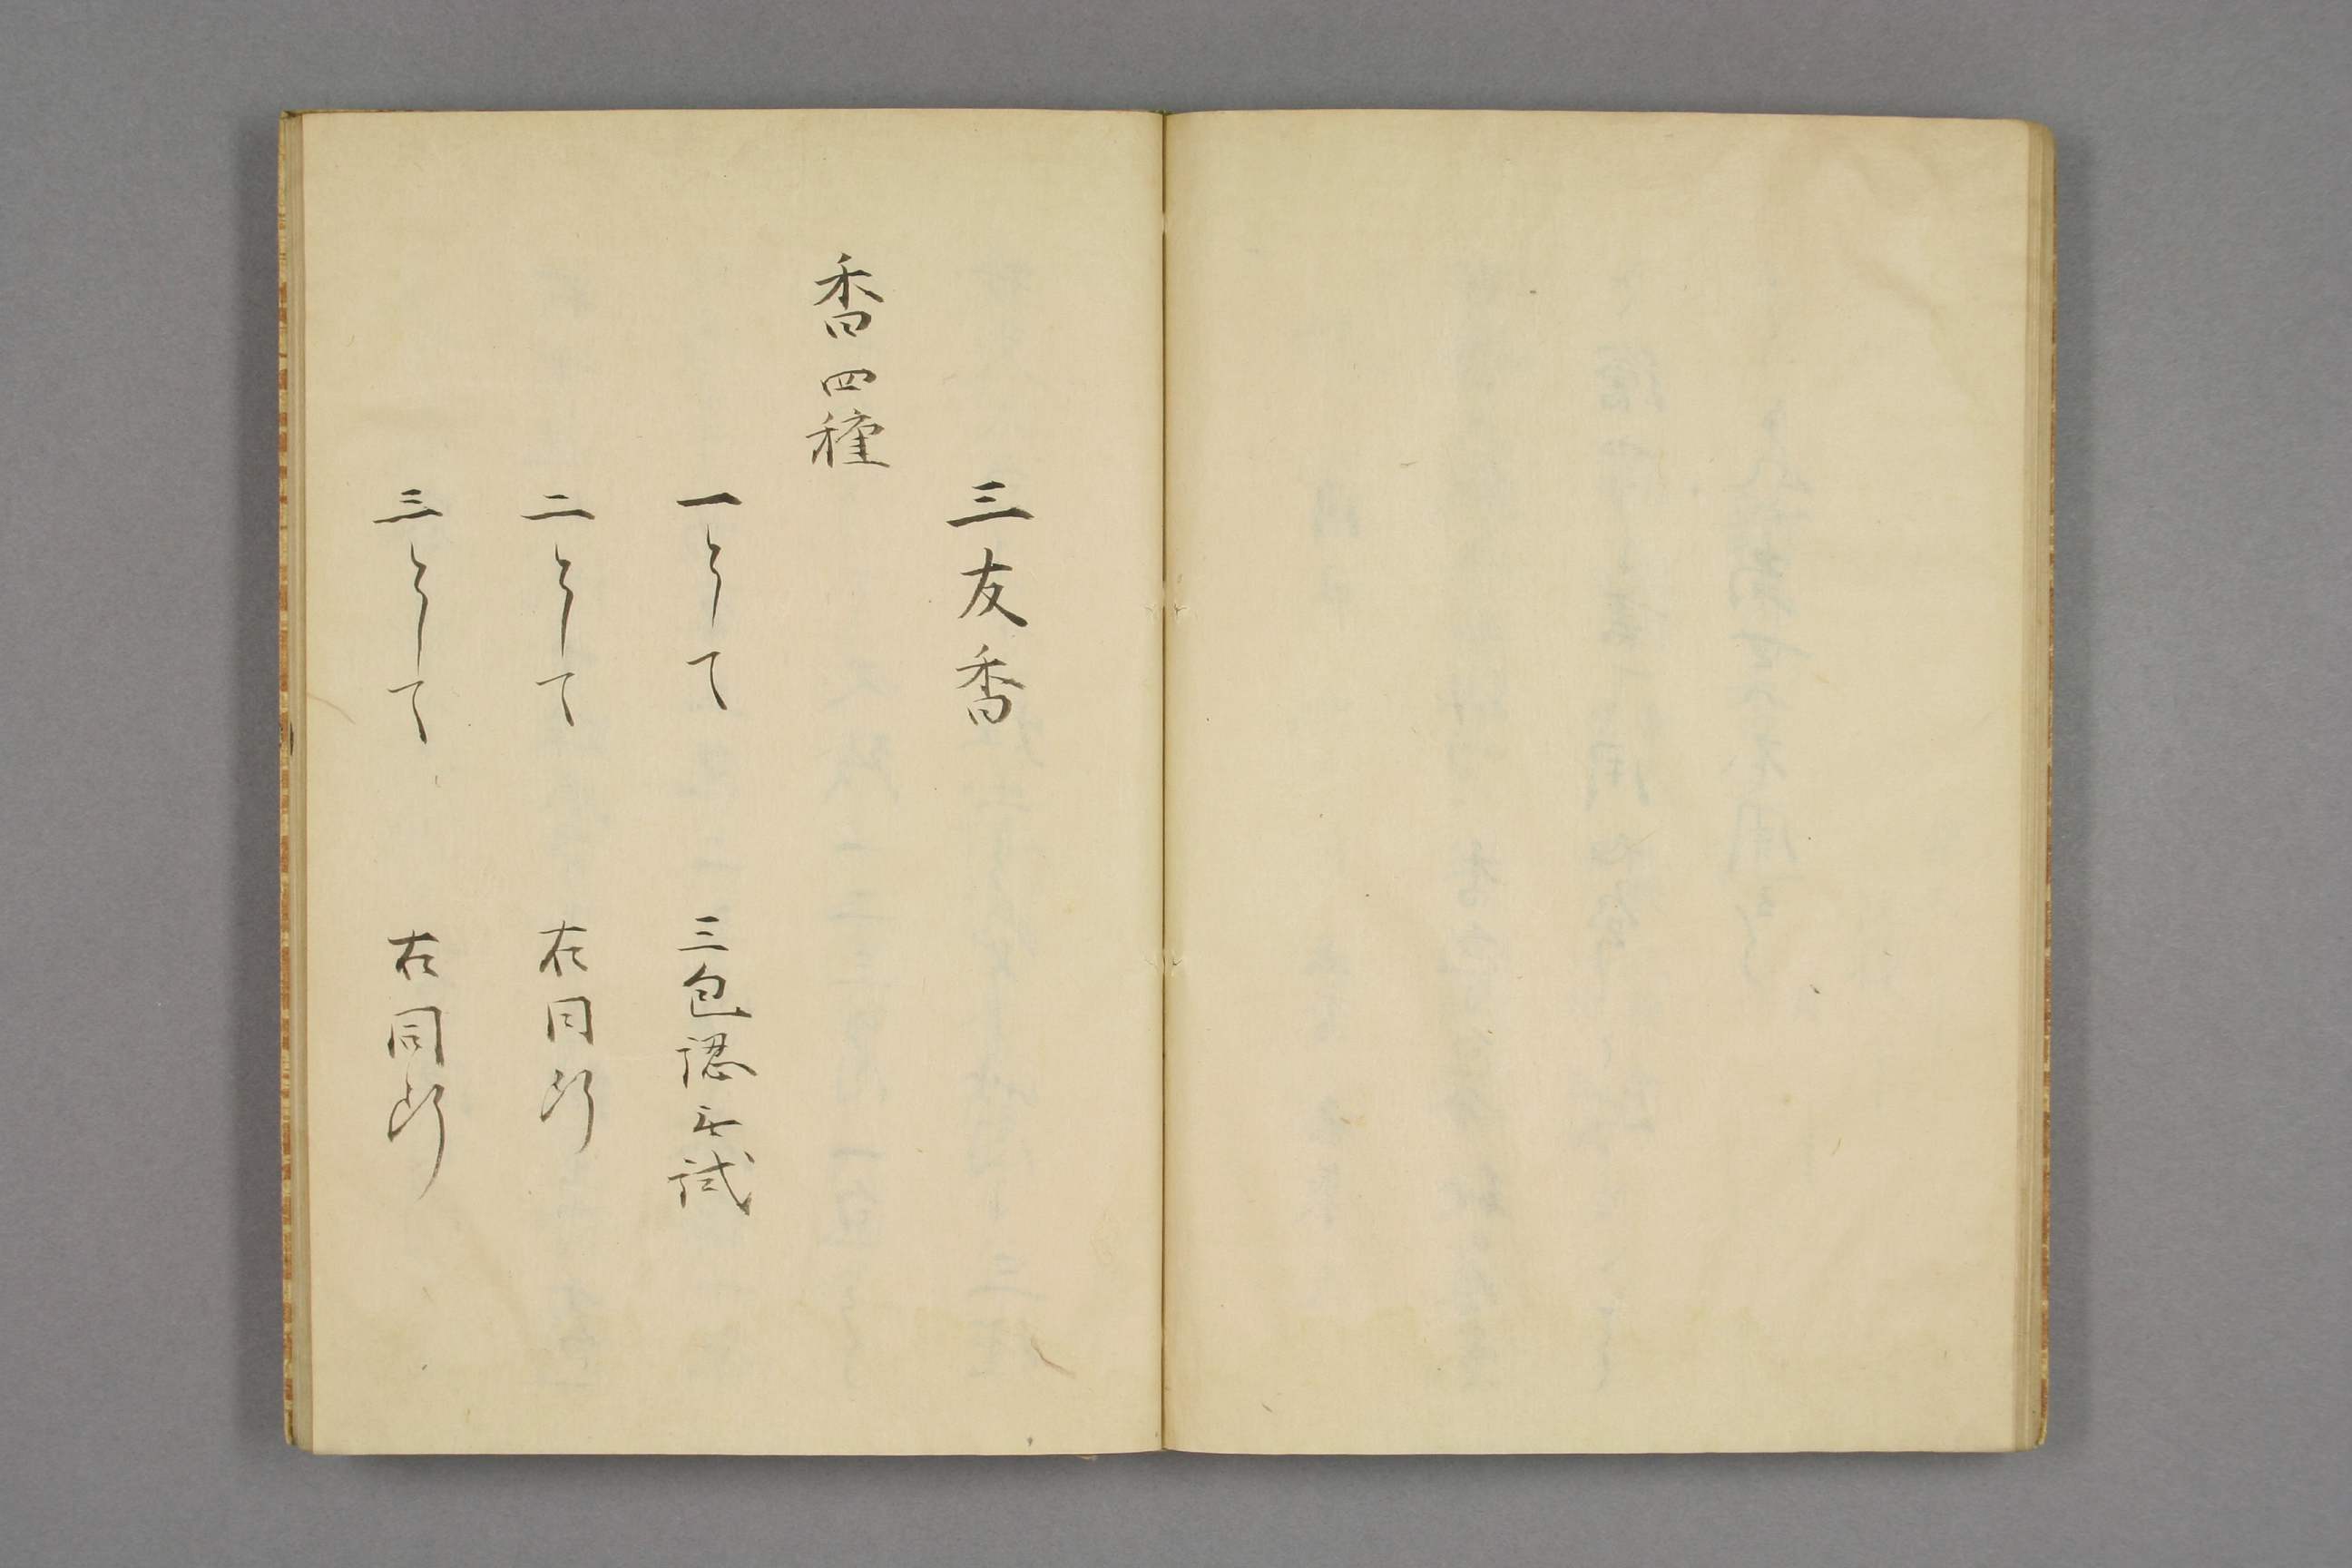 三友香
香四種
一として 三包認無試
二として 右同断
三として 右同断